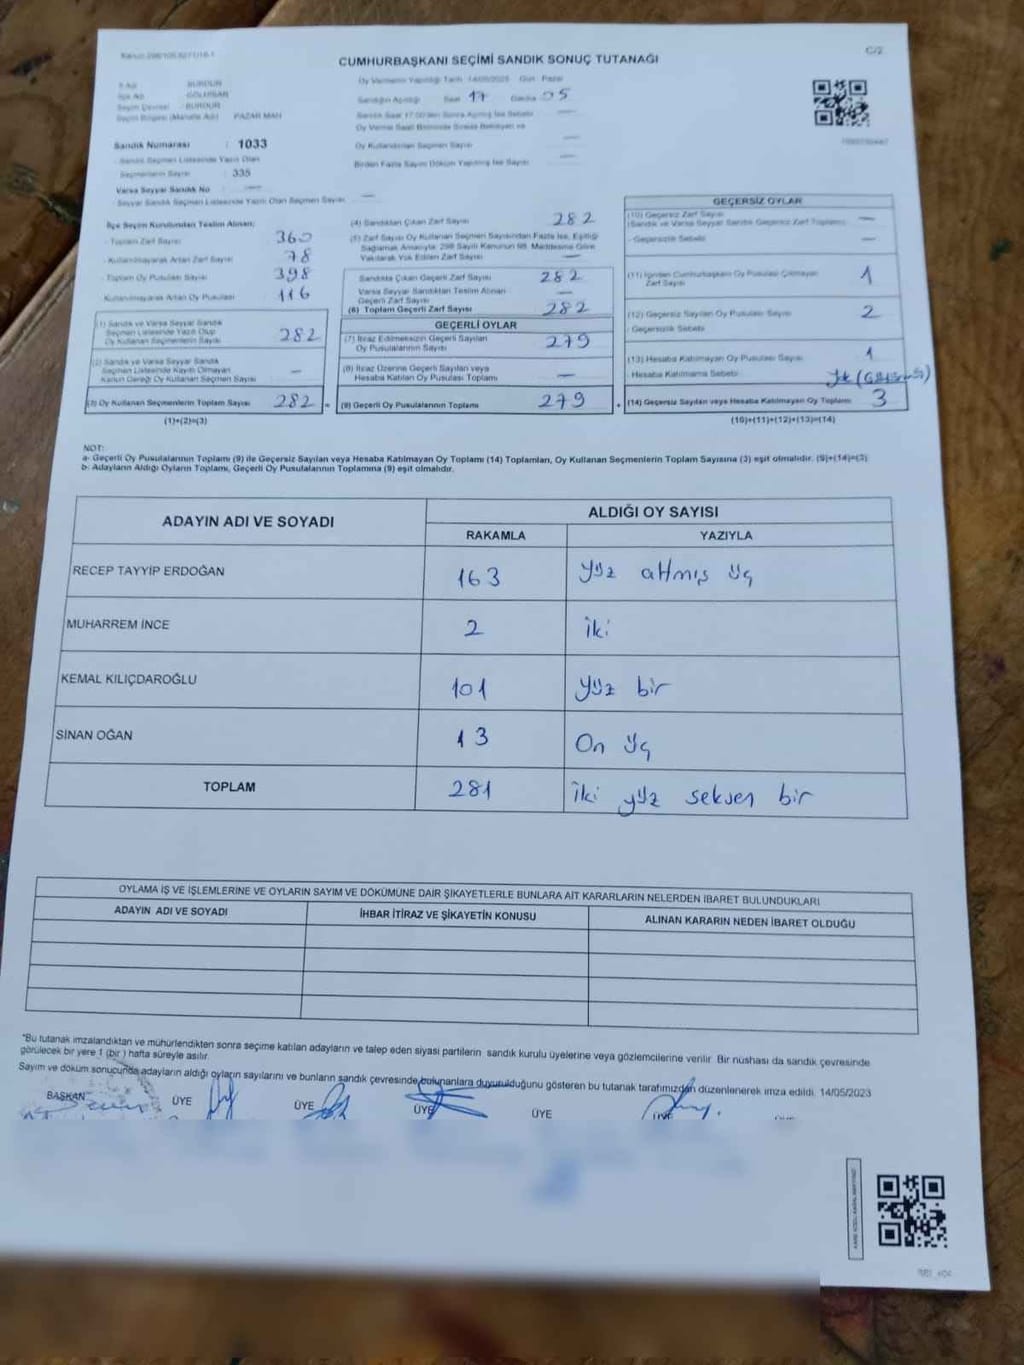 C/2
CUMHURBAŞKANI SEÇİMİ SANDIK SONUÇ TUTANAĞI
Oy Vermenin Yapıldığı Tarih 14/05/2023 Gün Pazar
İl Adı BURDUR
İlçe Adı GÖLHİSAR
Seçim Çevresi BURDUR
Seçim Bölgesi (Mahalle Adı) PAZAR MAH
Sandığın Açıldığı Saat 17 Dakika 05
Sandık Numarası : 1033
Sandık Seçmen Listesinde Yazılı Olan
Seçmenlerin Sayısı : 335
Oy Kullandırılan Seçmen Sayısı —
Birden Fazla Sayım Döküm Yapılmış İse Sayısı —
Varsa Seyyar Sandık No —
Seyyar Sandık Seçmen Listesinde Yazılı Olan Seçmen Sayısı —
İlçe Seçim Kurulundan Teslim Alınan;
Toplam Zarf Sayısı 360
Kullanılmayarak Artan Zarf Sayısı 78
Toplam Oy Pusulası Sayısı 398
Kullanılmayarak Artan Oy Pusulası 116
(1) Sandık ve Varsa Seyyar Sandık
Seçmen Listesinde Yazılı Olup
Oy Kullanan Seçmenlerin Sayısı 282
(2) Sandık ve Varsa Seyyar Sandık
Seçmen Listesinde Kayıtlı Olmayan
Kanun Gereği Oy Kullanan Seçmen Sayısı —
(3) Oy Kullanan Seçmenlerin Toplam Sayısı 282 =
(1)+(2)=(3)
(4) Sandıktan Çıkan Zarf Sayısı 282
(5) Zarf Sayısı Oy Kullanan Seçmen Sayısından Fazla İse, Eşitliği
Sağlamak Amacıyla; 298 Sayılı Kanunun 98. Maddesine Göre
Yakılarak Yok Edilen Zarf Sayısı —
Sandıkta Çıkan Geçerli Zarf Sayısı 282
Varsa Seyyar Sandıktan Teslim Alınan
Geçerli Zarf Sayısı —
(6) Toplam Geçerli Zarf Sayısı 282
GEÇERLİ OYLAR
(7) İtiraz Edilmeksizin Geçerli Sayılan
Oy Pusulalarının Sayısı 279
(8) İtiraz Üzerine Geçerli Sayılan veya
Hesaba Katılan Oy Pusulası Toplamı —
(9) Geçerli Oy Pusulalarının Toplamı 279 +
GEÇERSİZ OYLAR
(10) Geçersiz Zarf Sayısı
(Sandık ve Varsa Seyyar Sandık Geçersiz Zarf Toplamı) —
Geçersizlik Sebebi —
(11) İçinden Cumhurbaşkanı Oy Pusulası Çıkmayan
Zarf Sayısı 1
(12) Geçersiz Sayılan Oy Pusulası Sayısı 2
Geçersizlik Sebebi
(13) Hesaba Katılmayan Oy Pusulası Sayısı 1
Hesaba Katılmama Sebebi
(14) Geçersiz Sayılan veya Hesaba Katılmayan Oy Toplamı 3
(10)+(11)+(12)+(13)=(14)
NOT:
a- Geçerli Oy Pusulalarının Toplamı (9) ile Geçersiz Sayılan veya Hesaba Katılmayan Oy Toplamı (14) Toplamları, Oy Kullanan Seçmenlerin Toplam Sayısına (3) eşit olmalıdır. (9)+(14)=(3)
b- Adayların Aldığı Oyların Toplamı, Geçerli Oy Pusulalarının Toplamına (9) eşit olmalıdır.
ADAYIN ADI VE SOYADI ALDIĞI OY SAYISI
RAKAMLA YAZIYLA
RECEP TAYYİP ERDOĞAN 163 yüz altmış üç
MUHARREM İNCE 2 iki
KEMAL KILIÇDAROĞLU 101 yüz bir
SİNAN OĞAN 13 On üç
TOPLAM 281 iki yüz seksen bir
OYLAMA İŞ VE İŞLEMLERİNE VE OYLARIN SAYIM VE DÖKÜMÜNE DAİR ŞİKAYETLERLE BUNLARA AİT KARARLARIN NELERDEN İBARET BULUNDUKLARI
ADAYIN ADI VE SOYADI İHBAR İTİRAZ VE ŞİKAYETİN KONUSU ALINAN KARARIN NEDEN İBARET OLDUĞU
*Bu tutanak imzalandıktan ve mühürlendikten sonra seçime katılan adayların ve talep eden siyasi partilerin sandık kurulu üyelerine veya gözlemcilerine verilir. Bir nüshası da sandık çevresinde
görülecek bir yere 1 (bir) hafta süreyle asılır.
Sayım ve döküm sonucunda adayların aldığı oyların sayılarını ve bunların sandık çevresinde bulunanlara duyurulduğunu gösteren bu tutanak tarafımızdan düzenlenerek imza edildi. 14/05/2023
BAŞKAN ÜYE ÜYE ÜYE ÜYE ÜYE